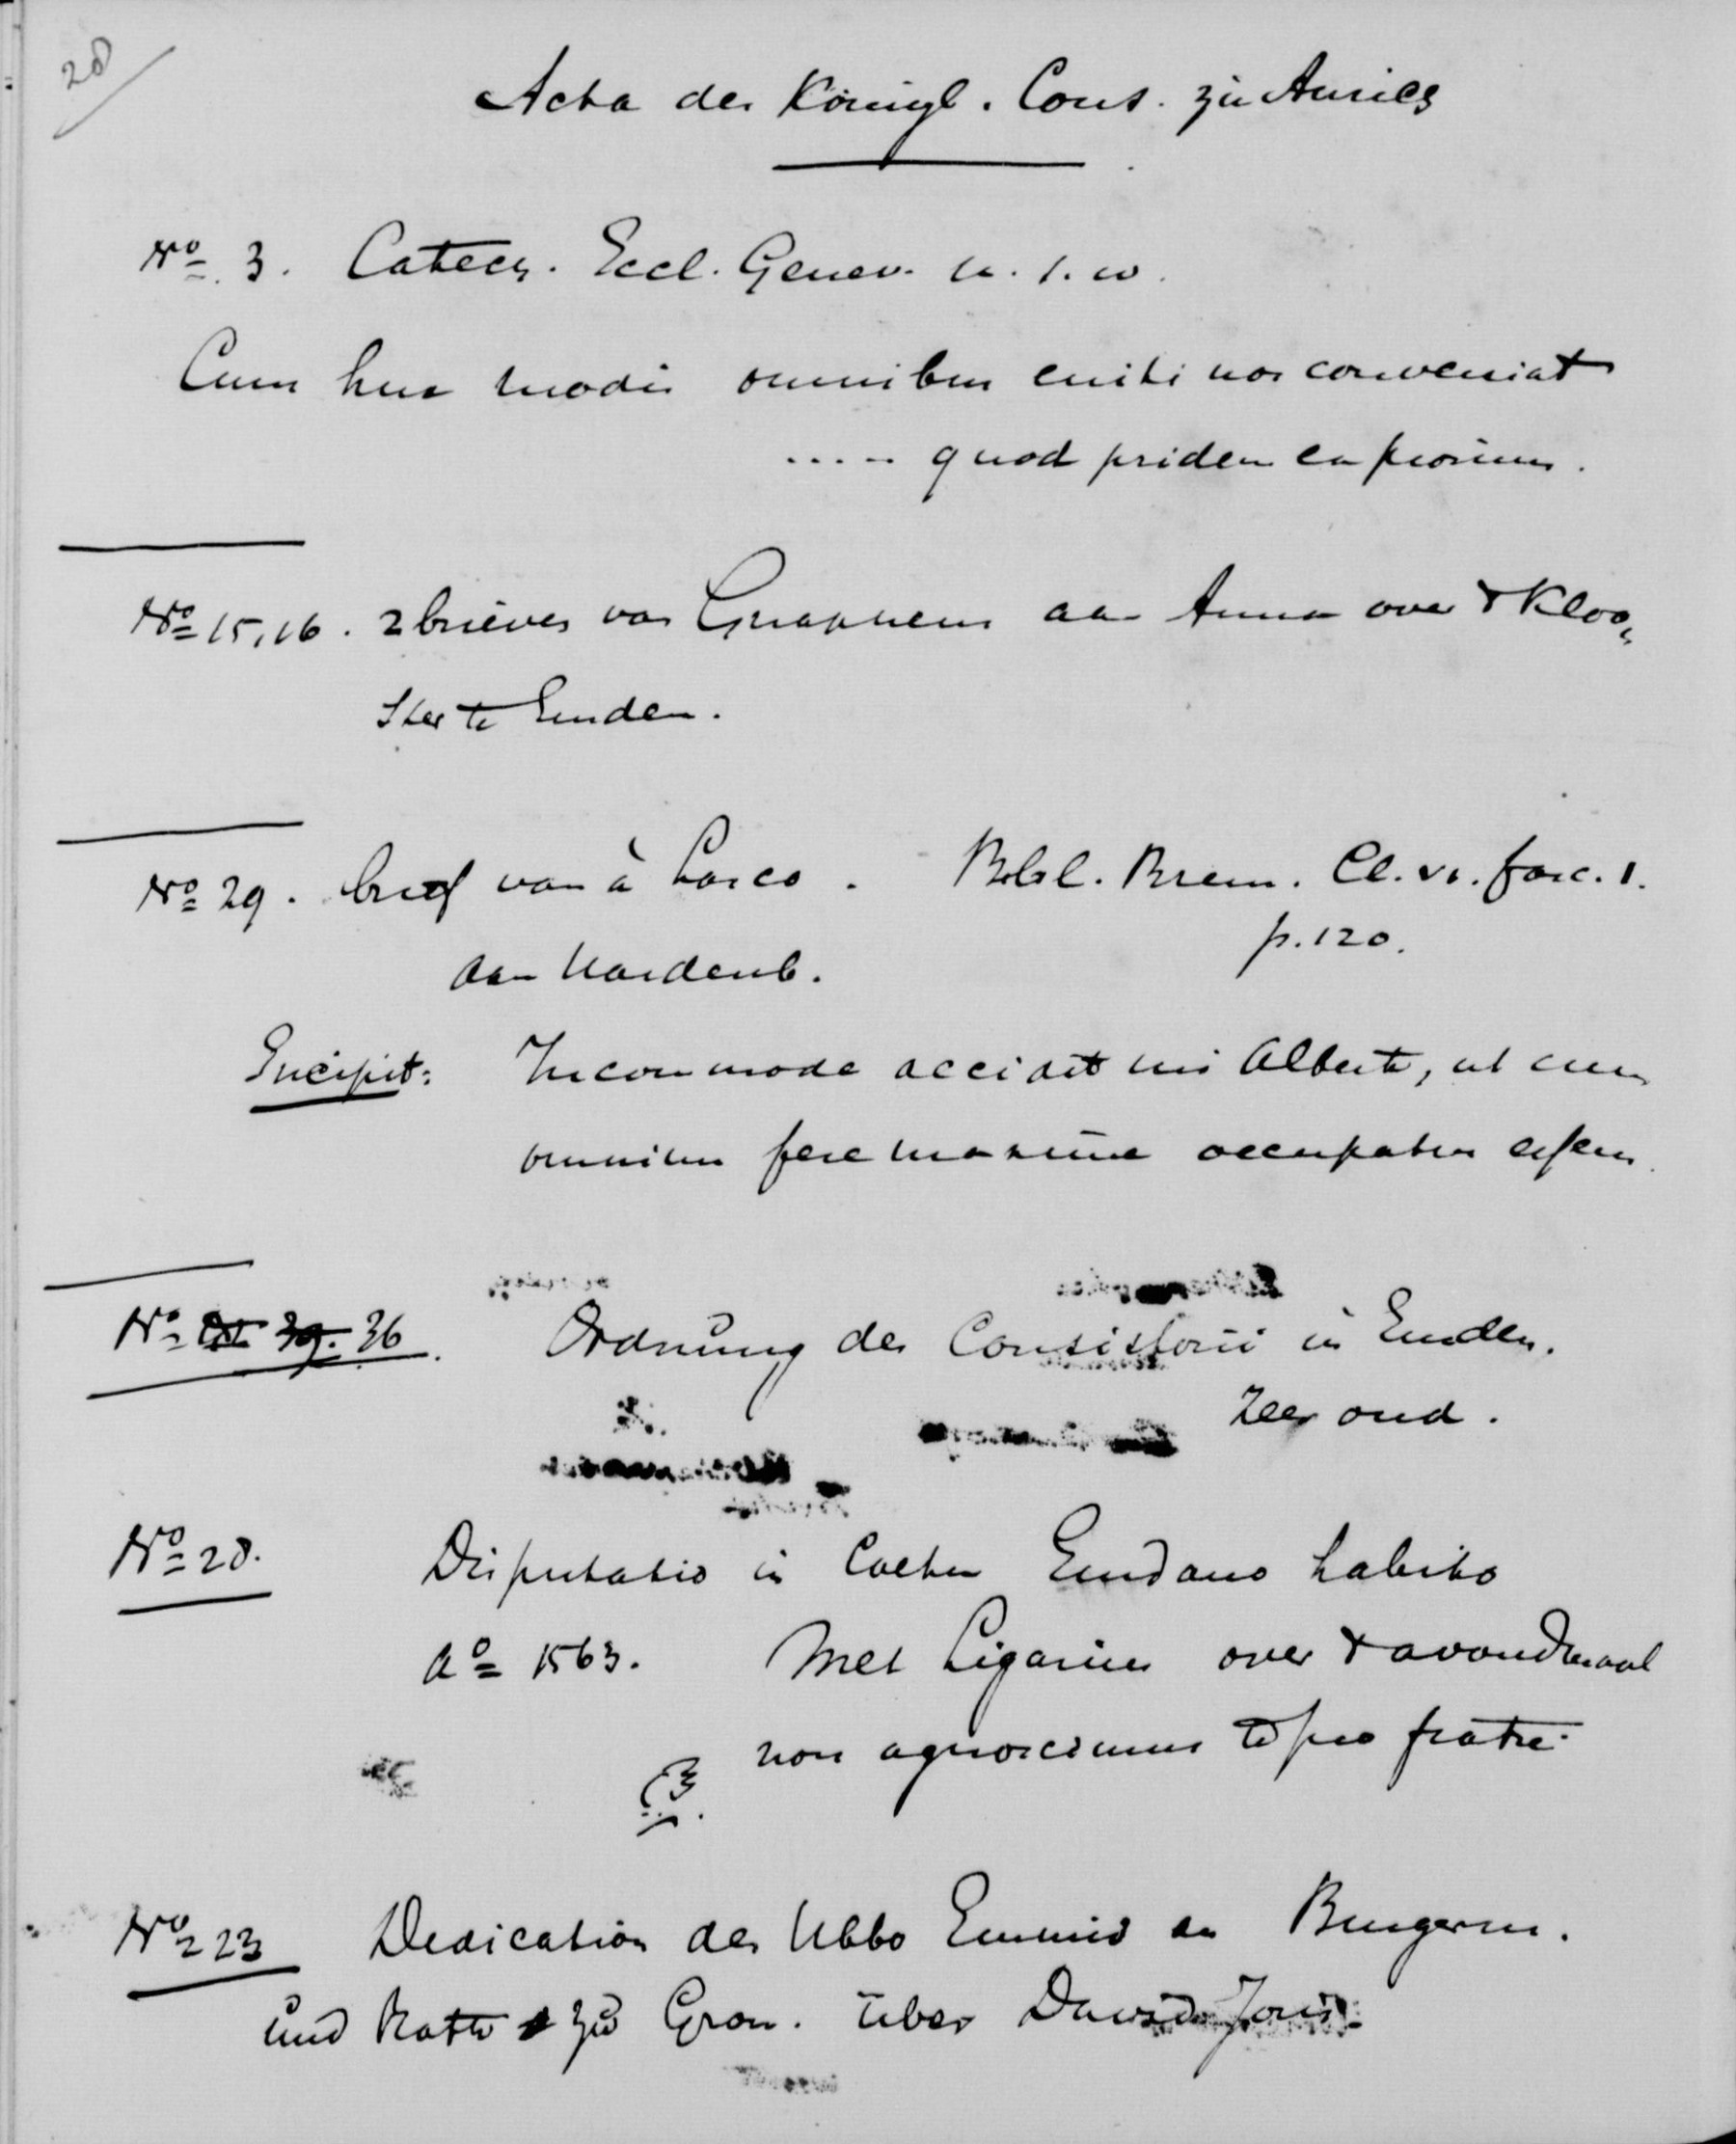 20
Acta des Königl. Cons. zu Aurich
No. 3. Catech. Eccl. Genev. u. s. w.
Cum hic modis omnibus eniti nos conveniat
..... quod pridem
No 15, 16. 2 brieven van Gnapheus aan Anna over 't Kloo„
ster te Emden.
No 29. brief van à Lasco. Bibl. Brem. Cl. VI. fasc. 1.
p. 120.
aan Hardenb.
Incipit: Incommode accidit mi Alberte, ut cum
omnium fere maxime occupatus essem
No 36. Ordnung des Consistorii in Emden.
Zeer oud.
No 20. Disputatio in Coetu Emdano habito
ao 1563. Met Ligarius over 't avondmaal
non agnoscimus te pro fratre.
No 23 Dedication des Ubbo Emmius an Burgerm.
und Rath zu Gron. über David Joris.